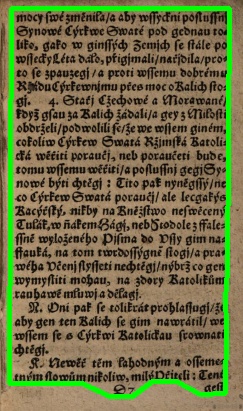 mocy swé změnila/a aby wssyckni poslussnj
Synowé Cýrkwe Swaté pod gednau to-
liko, gako w ginssých Zemjch se stále po
wssecky Léta dálo, přigjmali/nařjdila/pro-
to se zpauzegj/a proti wssemu dobrému
Ržádu Cýrkewnjmu přes moc Kalich sto-
gj. 4. Stařj Cžechowé a Morawané/
když gsau za Kalich žádali/a gey z Milosti
obdrželi/podwolili se/že we wssem giném,
cokoliw Cýrkew Swatá Ržjmská Katoli-
cká wěřiti poraučj, neb poraučeti bude,
tomu wssemu wěřiti/a poslussnj gegj Sy-
nowé býti chtěgj: Tito pak nyněgssý/ne-
co Cýrkew Swatá poraučj/ale lecgakýs
Kacýřský, nikdy na Kněžstwo neswěcený
Tulák, w ňakém Hágj, neb Stodole z ffale-
ssně wyloženého Pjsma do Vssý gim na-
ffauká, na tom twrdossýgně stogj/a pra-
wého Včenj slysseti nechtěgj/nýbrž co gen
wymysliti mohau, na zdory Katoljkům
rauhawě mluwj a dělagj.
N. Onj pak se tolikrát prohlassugj/že
aby gen ten Kalich se gim nawrátil/we
wssem se s Cýrkwj Katolickau srownati
chtěgj.
K. Newěř těm lahodným a osseme-
tným slowům nikoliw, milý Včiteli: Tent
gest